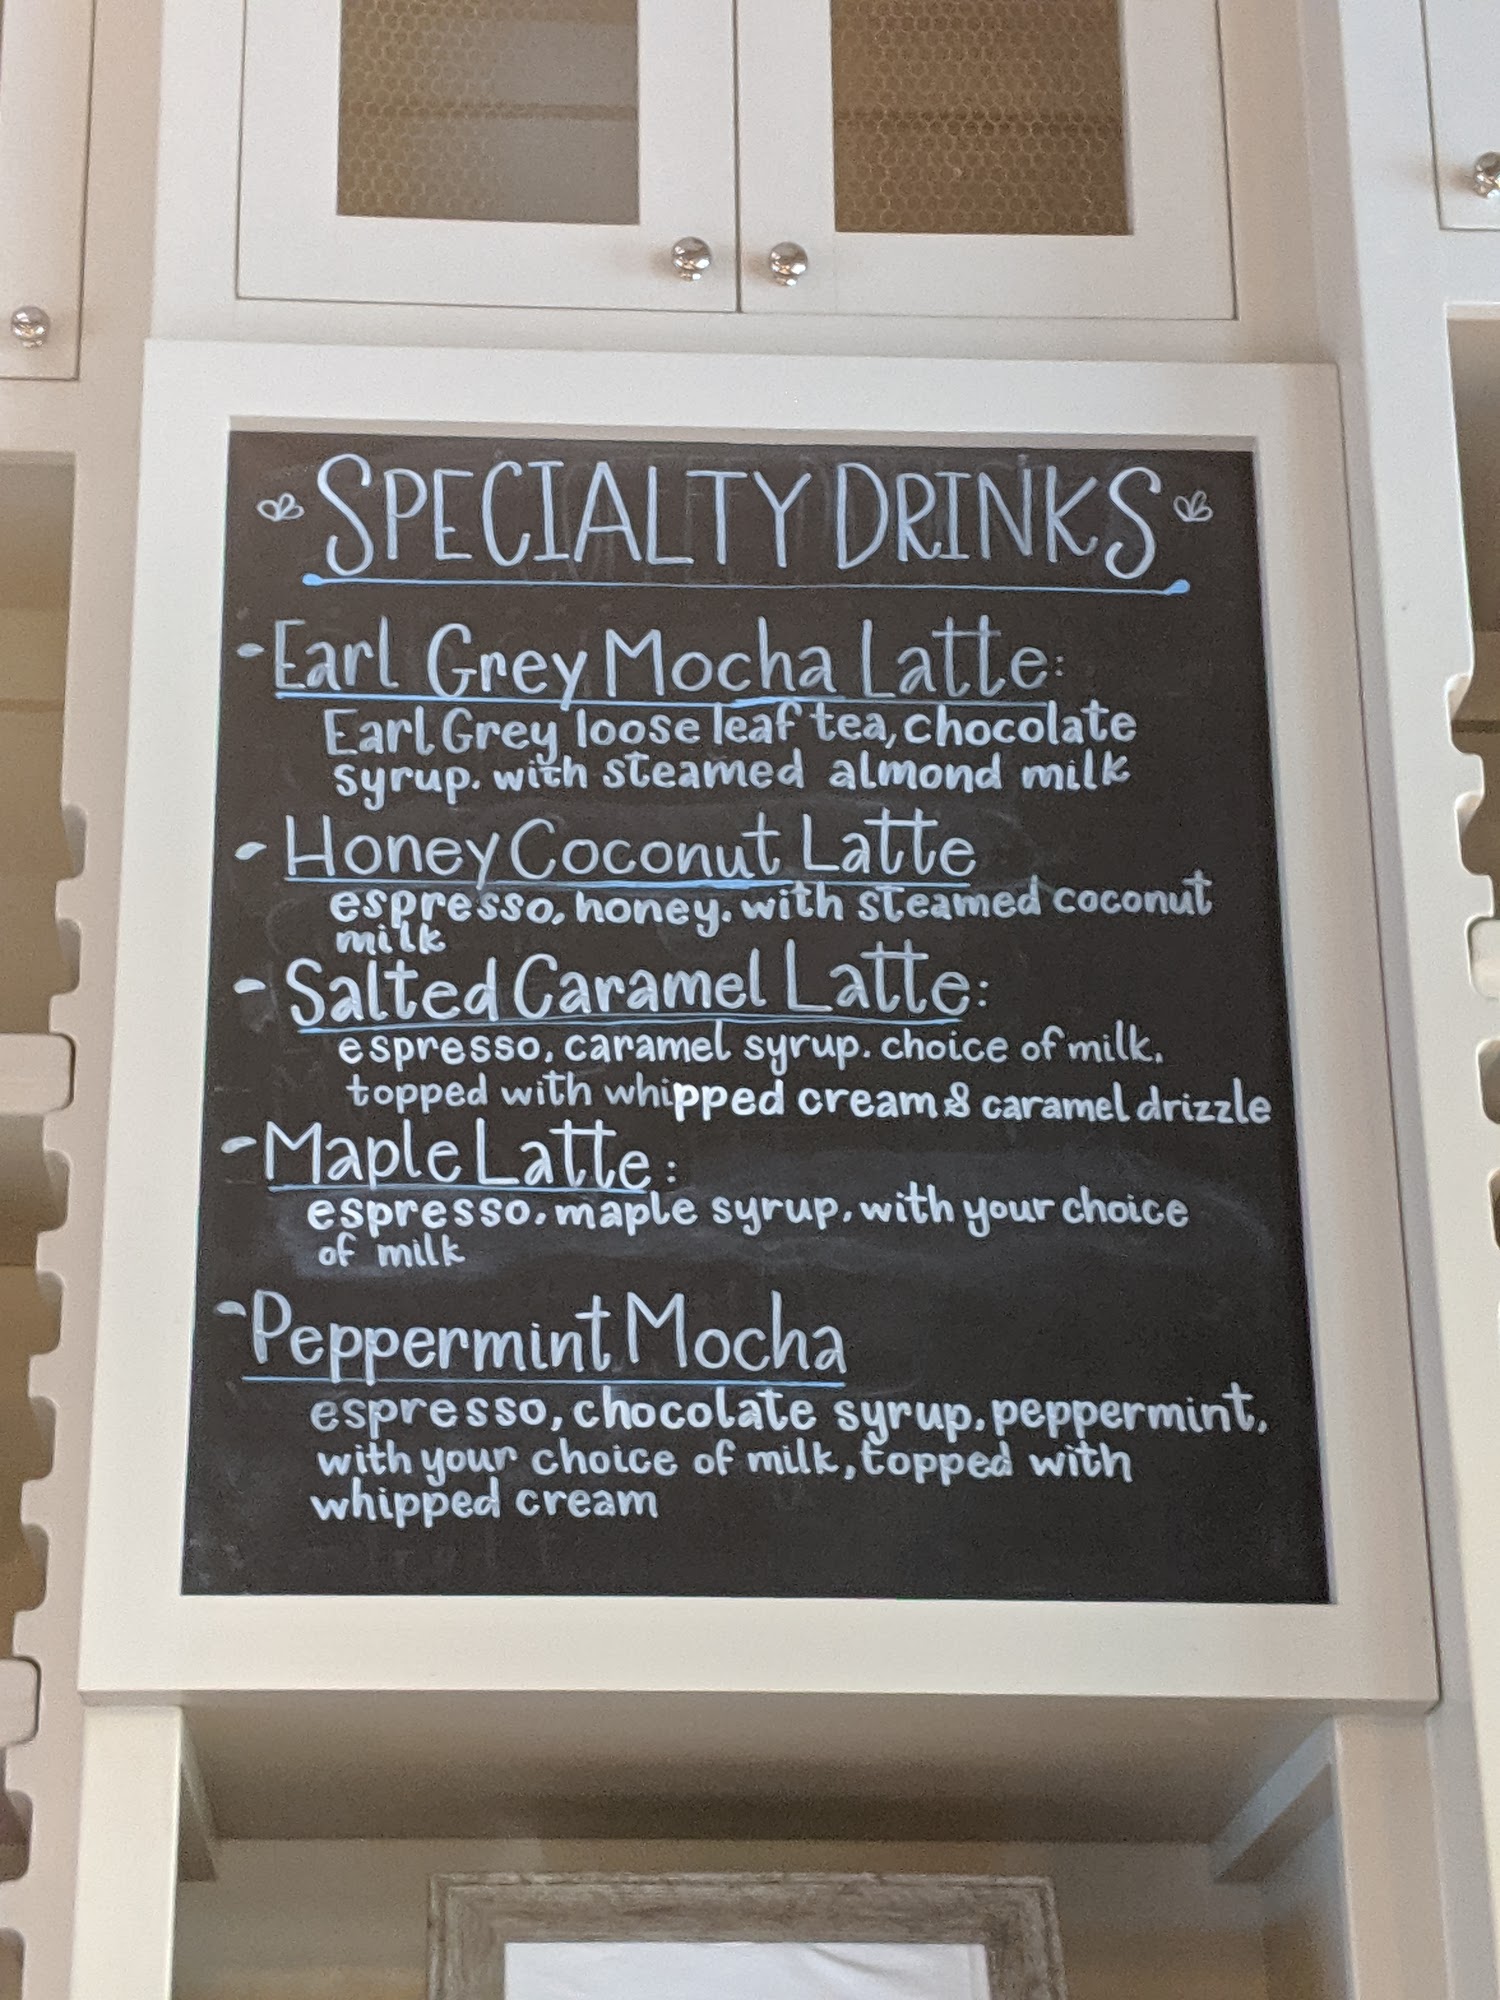 SPECIALTY DRINKS
- Earl Grey Mocha Latte:
Earl Grey loose leaf tea, chocolate
syrup. with steamed almond milk
- Honey Coconut Latte
espresso, honey. with steamed coconut
milk
- Salted Caramel Latte:
espresso, caramel syrup. choice of milk.
topped with whipped cream & caramel drizzle
- Maple Latte:
espresso. maple syrup. with your choice
of milk
- Peppermint Mocha
espresso, chocolate syrup. peppermint.
with your choice of milk, topped with
whipped cream